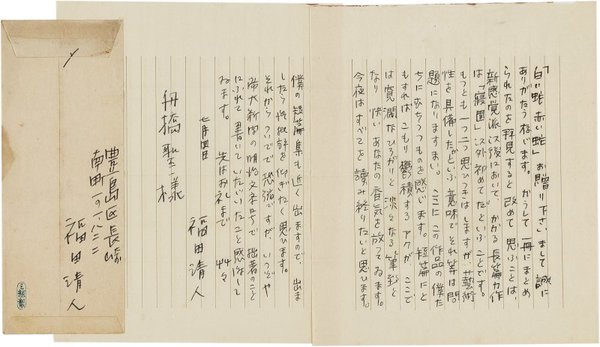 「白い蛇赤い蛇」お贈り下さいまして誠に
ありがたうぞんじます。かうして一冊にまとめ
られたのを拝見すると改めて思ふことは、
新感覚派以後において、かゝる長篇力作
は「寝園」以外初めてだといふことです。
もつとも一つ二つ思ひつきはしますが芸術
性を具備したかといふ意味でそれ等は問
題になりますまい。ここにこの作品の僕た
ちに つものを感じます。短篇にと
もすればこもり鬱積するアクが、ここで
は寛濶なひろがりと淡々なる筆致と
なり快いあなたの香気を放つてゐます。
今夜はすべてを読み終りたいと思ひます。
僕の短篇集も近く出ますので、出ま
したら御批評を仰ぎたく思ひます。
それからついでで恐縮ですが、いつぞや
帝大新聞の明治文 もので拙著のこと
にふれて書いていたゞいたこと感謝して
ゐます。先はお礼まで 艸々
七月四日
福田清人
舟橋聖一様
豊島区長崎
南町
福田清人